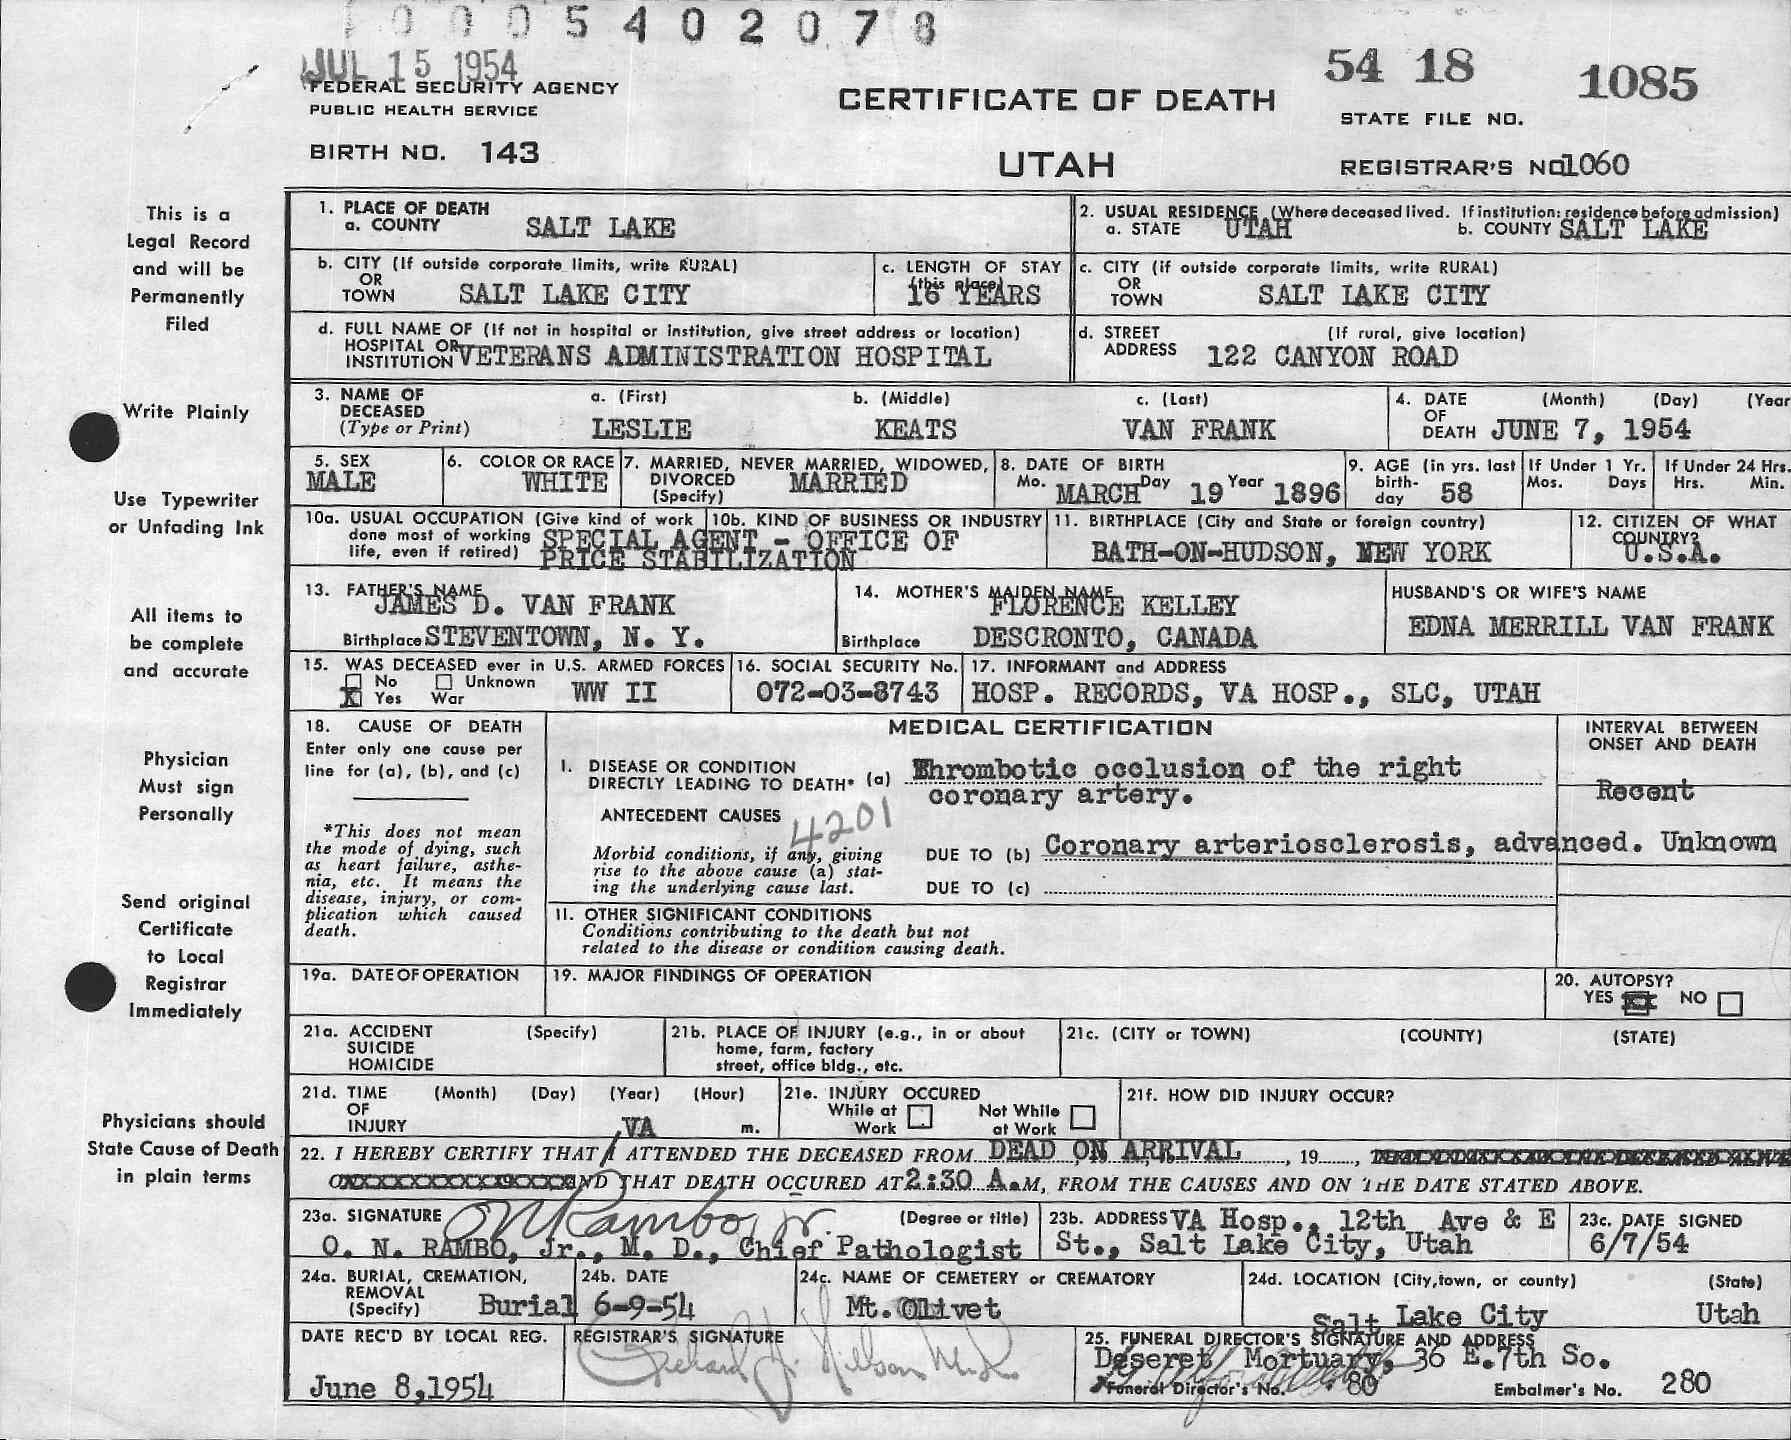 0005402078
JUL 15 1954
FEDERAL SECURITY AGENCY
PUBLIC HEALTH SERVICE
BIRTH NO. 143
CERTIFICATE OF DEATH
UTAH
54 18 1085
STATE FILE NO.
REGISTRAR'S NO. 1060
This is a
Legal Record
and will be
Permanently
Filed
Write Plainly
Use Typewriter
or Unfading Ink
All items to
be complete
and accurate
Physician
Must sign
Personally
Send original
Certificate
to Local
Registrar
Immediately
Physicians should
State Cause of Death
in plain terms
1. PLACE OF DEATH
a. COUNTY SALT LAKE
2. USUAL RESIDENCE (Where deceased lived. If institution: residence before admission)
a. STATE UTAH b. COUNTY SALT LAKE
b. CITY (If outside corporate limits, write RURAL)
OR
TOWN SALT LAKE CITY
c. LENGTH OF STAY
(this place)
16 YEARS
c. CITY (if outside corporate limits, write RURAL)
OR
TOWN SALT LAKE CITY
d. FULL NAME OF (If not in hospital or institution, give street address or location)
HOSPITAL OR
INSTITUTION VETERANS ADMINISTRATION HOSPITAL
d. STREET (If rural, give location)
ADDRESS 122 CANYON ROAD
3. NAME OF a. (First) b. (Middle) c. (Last)
DECEASED
(Type or Print) LESLIE KEATS VAN FRANK
4. DATE (Month) (Day) (Year
OF
DEATH JUNE 7, 1954
5. SEX
MALE
6. COLOR OR RACE
WHITE
7. MARRIED, NEVER MARRIED, WIDOWED,
DIVORCED MARRIED
(Specify)
8. DATE OF BIRTH
Mo. MARCH Day 19 Year 1896
9. AGE (in yrs. last
birth-
day 58
If Under 1 Yr.
Mos. Days
If Under 24 Hrs.
Hrs. Min.
10a. USUAL OCCUPATION (Give kind of work
done most of working
life, even if retired)
10b. KIND OF BUSINESS OR INDUSTRY
SPECIAL AGENT - OFFICE OF
PRICE STABILIZATION
11. BIRTHPLACE (City and State or foreign country)
BATH-ON-HUDSON, NEW YORK
12. CITIZEN OF WHAT
COUNTRY?
U.S.A.
13. FATHER'S NAME
JAMES D. VAN FRANK
Birthplace STEVENTOWN, N. Y.
14. MOTHER'S MAIDEN NAME
FLORENCE KELLEY
Birthplace DESCRONTO, CANADA
HUSBAND'S OR WIFE'S NAME
EDNA MERRILL VAN FRANK
15. WAS DECEASED ever in U.S. ARMED FORCES
No Unknown
X Yes War WW II
16. SOCIAL SECURITY No.
072-03-8743
17. INFORMANT and ADDRESS
HOSP. RECORDS, VA HOSP., SLC, UTAH
18. CAUSE OF DEATH
Enter only one cause per
line for (a), (b), and (c)
*This does not mean
the mode of dying, such
as heart failure, asthe-
nia, etc. It means the
disease, injury, or com-
plication which caused
death.
MEDICAL CERTIFICATION
INTERVAL BETWEEN
ONSET AND DEATH
I. DISEASE OR CONDITION
DIRECTLY LEADING TO DEATH* (a) Thrombotic occlusion of the right
coronary artery. Recent
ANTECEDENT CAUSES 4201
Morbid conditions, if any, giving
rise to the above cause (a) stat-
ing the underlying cause last.
DUE TO (b) Coronary arteriosclerosis, advanced. Unknown
DUE TO (c)
II. OTHER SIGNIFICANT CONDITIONS
Conditions contributing to the death but not
related to the disease or condition causing death.
19a. DATE OF OPERATION
19. MAJOR FINDINGS OF OPERATION
20. AUTOPSY?
YES XX NO
21a. ACCIDENT (Specify)
SUICIDE
HOMICIDE
21b. PLACE OF INJURY (e.g., in or about
home, farm, factory
street, office bldg., etc.
21c. (CITY or TOWN) (COUNTY) (STATE)
21d. TIME (Month) (Day) (Year) (Hour)
OF
INJURY m.
21e. INJURY OCCURED
While at Not While
Work at Work
21f. HOW DID INJURY OCCUR?
VA
22. I HEREBY CERTIFY THAT I ATTENDED THE DECEASED FROM DEAD ON ARRIVAL, 19...,
AND THAT DEATH OCCURED AT 2:30 A.M, FROM THE CAUSES AND ON THE DATE STATED ABOVE.
23a. SIGNATURE O N Rambo, Jr. (Degree or title)
O. N. RAMBO, Jr., M. D., Chief Pathologist
23b. ADDRESS VA Hosp., 12th Ave & E
St., Salt Lake City, Utah
23c. DATE SIGNED
6/7/54
24a. BURIAL, CREMATION,
REMOVAL
(Specify) Burial
24b. DATE
6-9-54
24c. NAME OF CEMETERY or CREMATORY
Mt. Olivet
24d. LOCATION (City, town, or county) (State)
Salt Lake City Utah
DATE REC'D BY LOCAL REG.
June 8, 1954
REGISTRAR'S SIGNATURE
25. FUNERAL DIRECTOR'S SIGNATURE AND ADDRESS
Deseret Mortuary, 36 E. 7th So.
Funeral Director's No. 80 Embalmer's No. 280